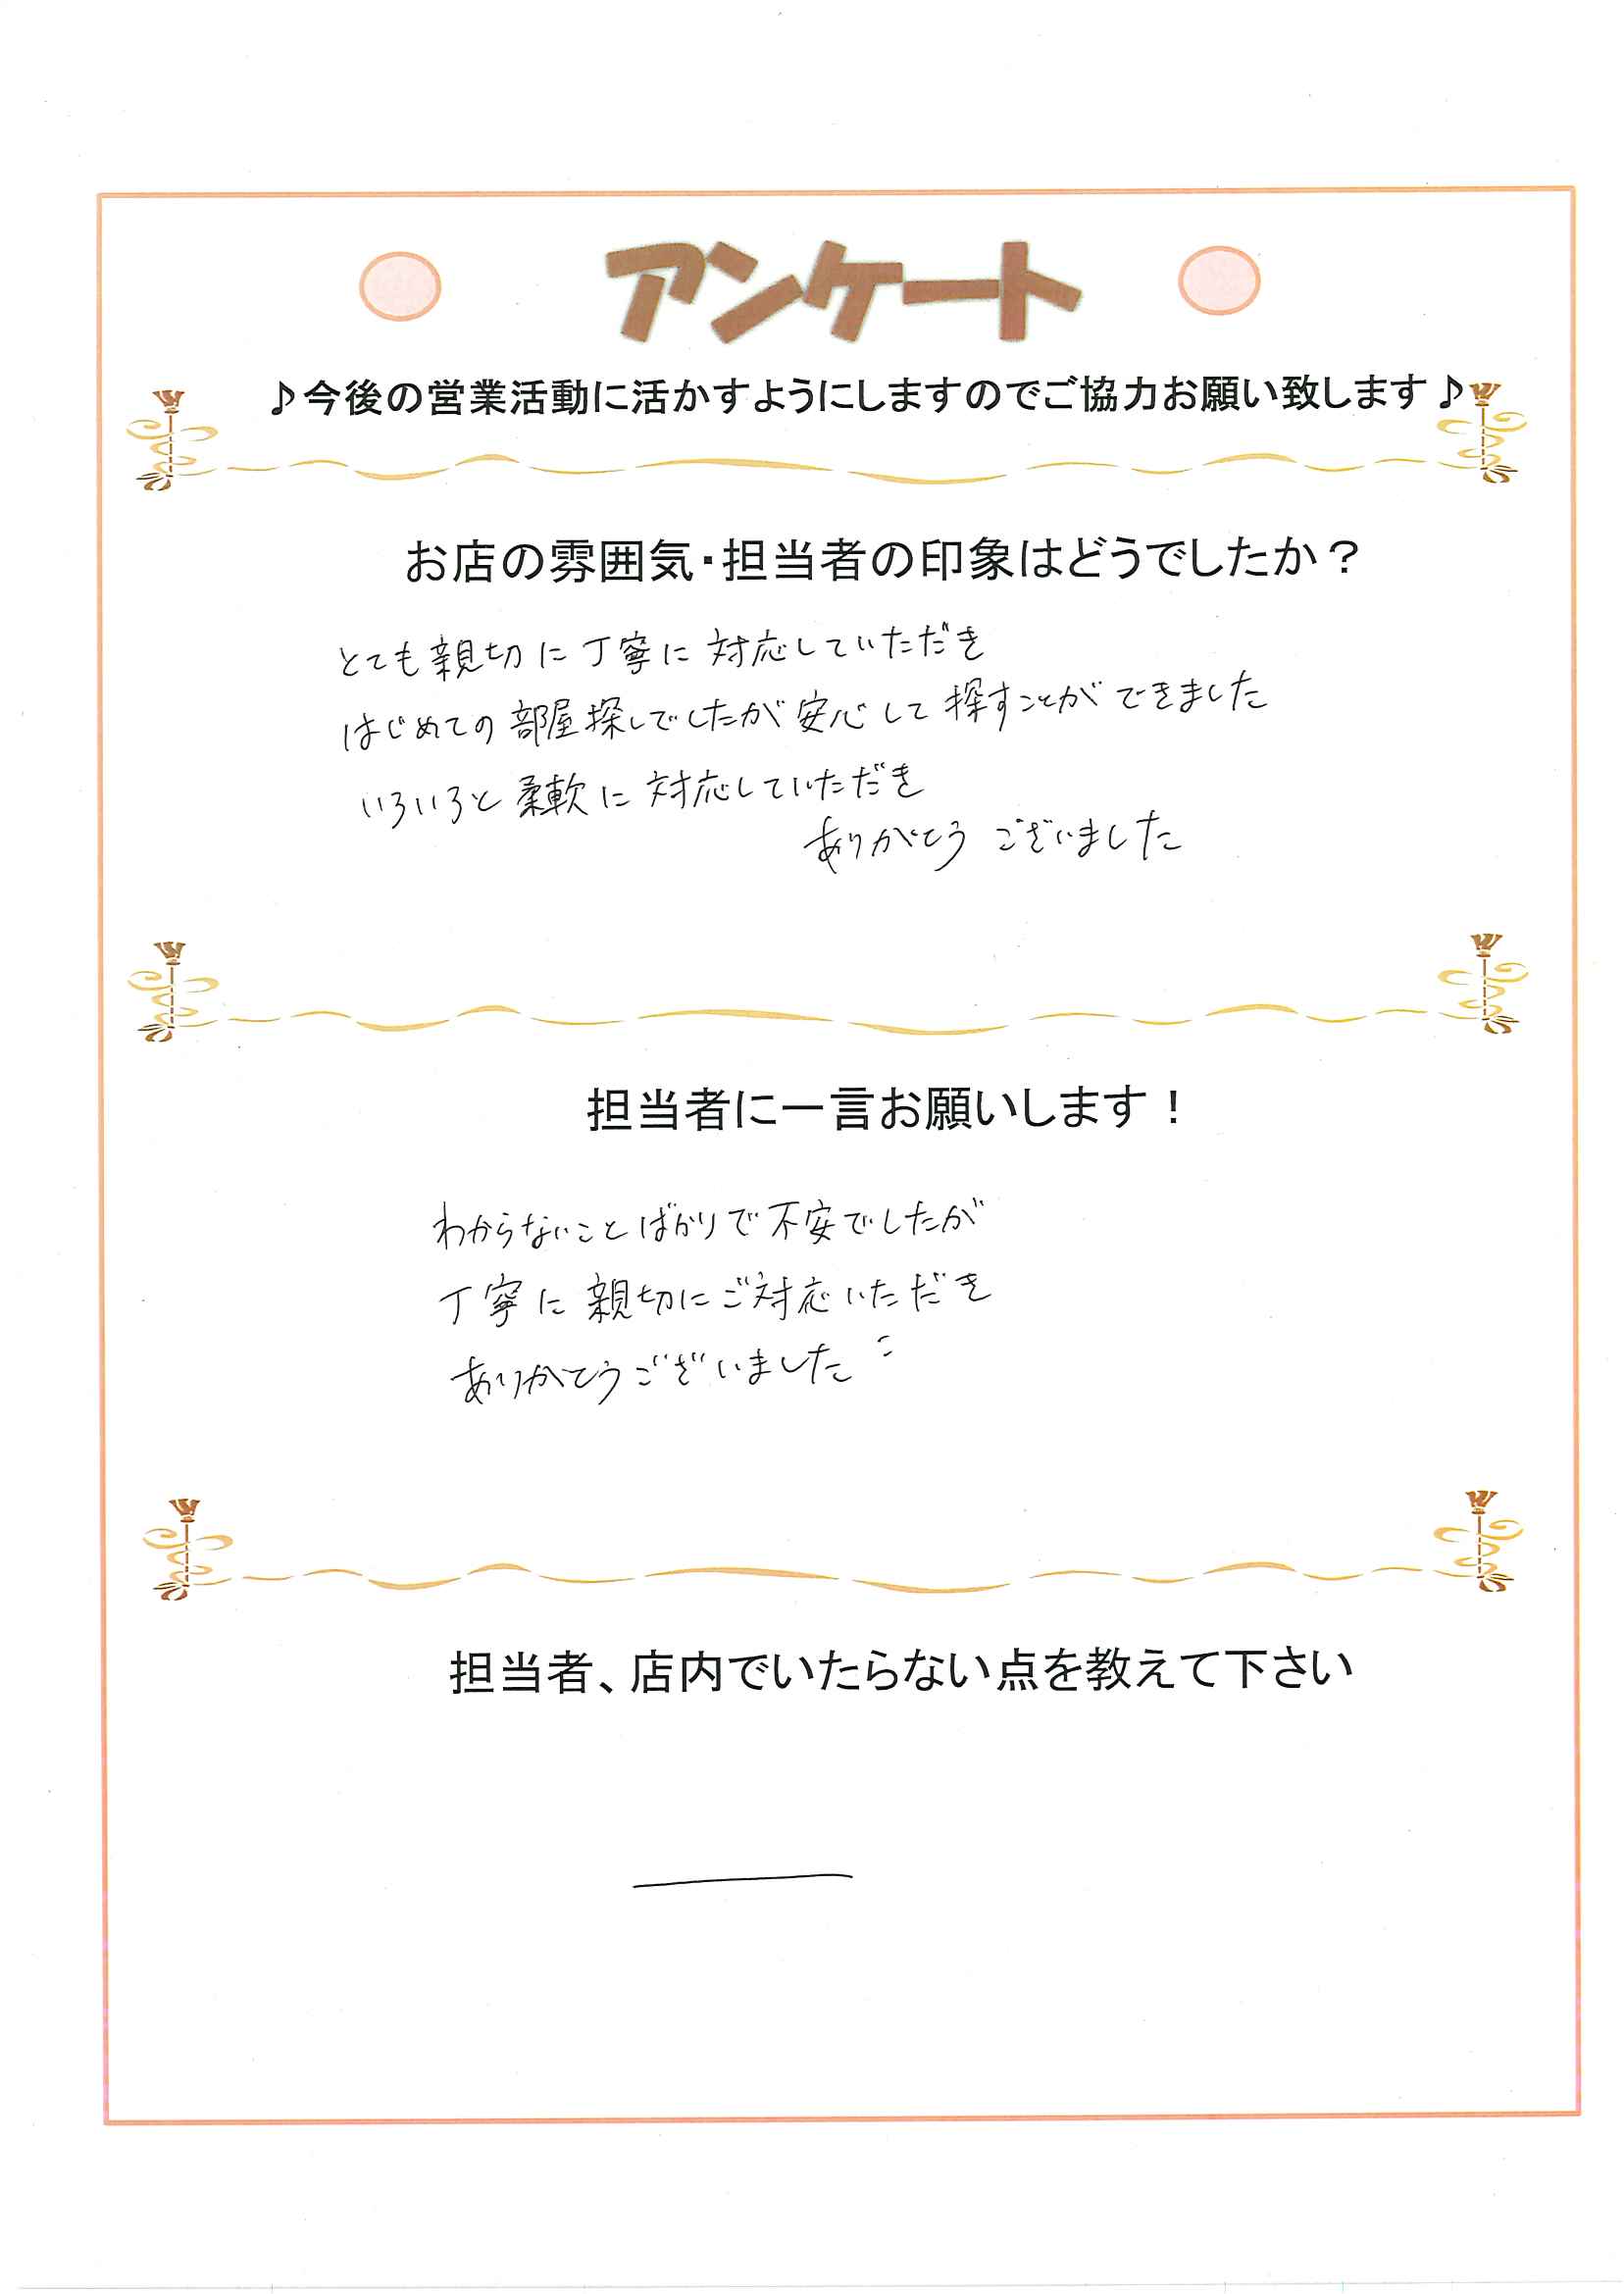 アンケート
♪今後の営業活動に活かすようにしますのでご協力お願い致します♪
お店の雰囲気・担当者の印象はどうでしたか？
とても親切に丁寧に対応していただき
はじめての部屋探しでしたが安心して探すことができました
いろいろと柔軟に対応していただき
ありがとうございました
担当者に一言お願いします！
わからないことばかりで不安でしたが
丁寧に親切にご対応いただき
ありがとうございました
担当者、店内でいたらない点を教えて下さい